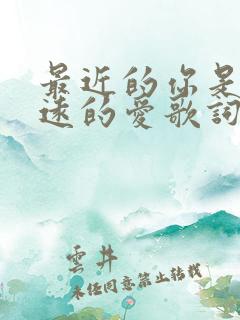 最近的你是
遠的愛歌詞
雲井
未经同意禁止转载